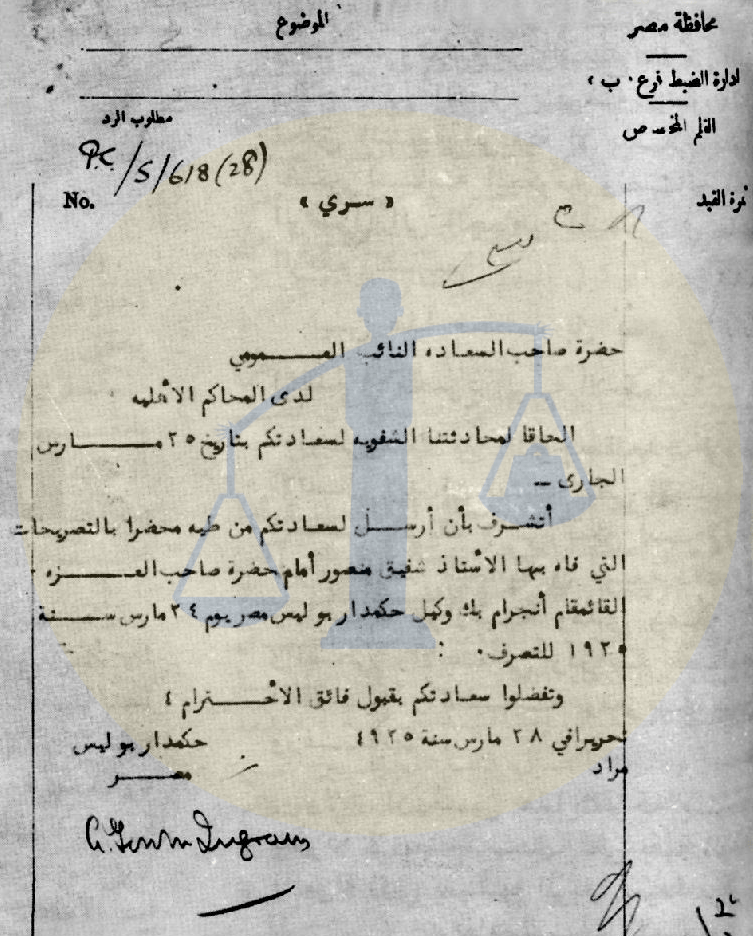 محافظة مصر
الموضوع
ادارة الضبط فرع ٠ ب ،
القلم المخصص
مطلوب الرد
P.C/S/618 (28)
No.
« سري »
نمرة القيد
حضرة صاحب السعاده النائب العـــمومي
لدى المحاكم الأهليه
الحاقا لمحادثتنا الشفويه لسعادتكم بتاريخ ٢٥ مــارس
الجارى –
أتشرف بأن أرســل لسعادتكم من طيه محضرا بالتصريحات
التي فاه بها الاستاذ شفيق منصور أمام حضرة صاحب العــزه
القائمقام أنجرام بك وكيل حكمدار بوليس مصر يوم ٢٤ مارس ســنة
١٩٢٥ للتصرف ٠
وتفضلوا سعادتكم بقبول فائق الاحــترام ٤
تحريرا في ٢٨ مارس سنة ١٩٢٥
حكمدار بوليس
مراد
مصــر
Ingram